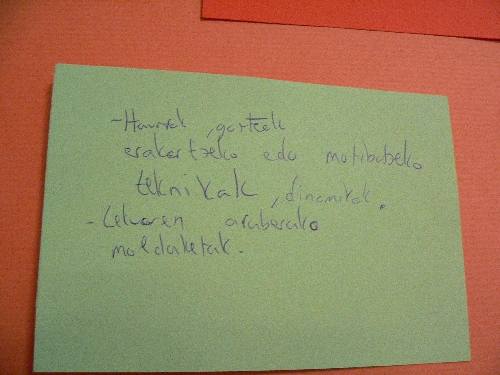 - Haurrek, gazteek
erakartzeko edo motibatzeko
teknikak, dinamikak.
- Lekuaren araberako
moldaketak.